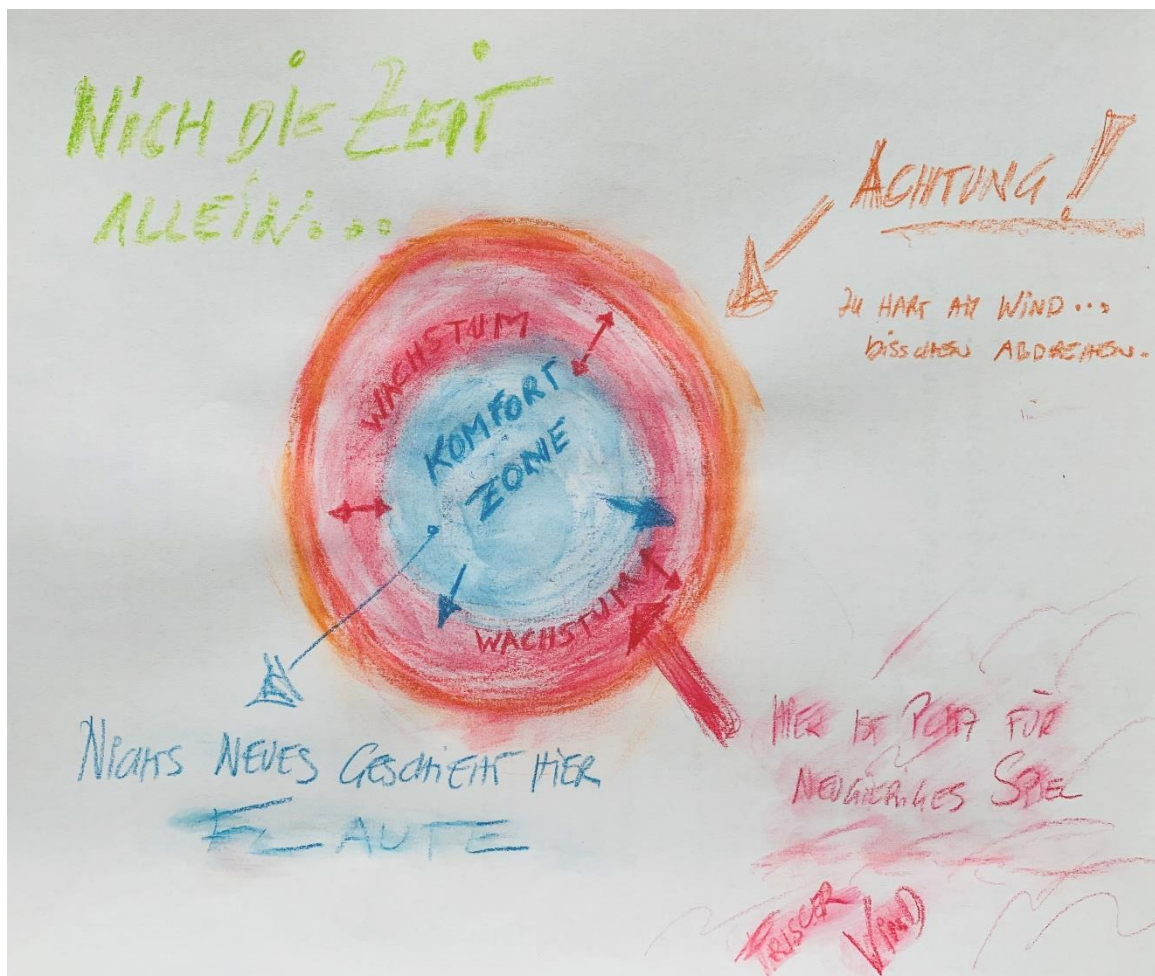 NICH DIE ZEIT
ALLEIN...
ACHTUNG!
ZU HART AM WIND...
BISSCHEN ABDREHEN.
WACHSTUM
KOMFORT
ZONE
WACHSTUM
NICHTS NEUES GESCHIEHT HIER
FLAUTE
HIER IST PLATZ FÜR
NEUGIERIGES SPIEL
FRISCER
WIND